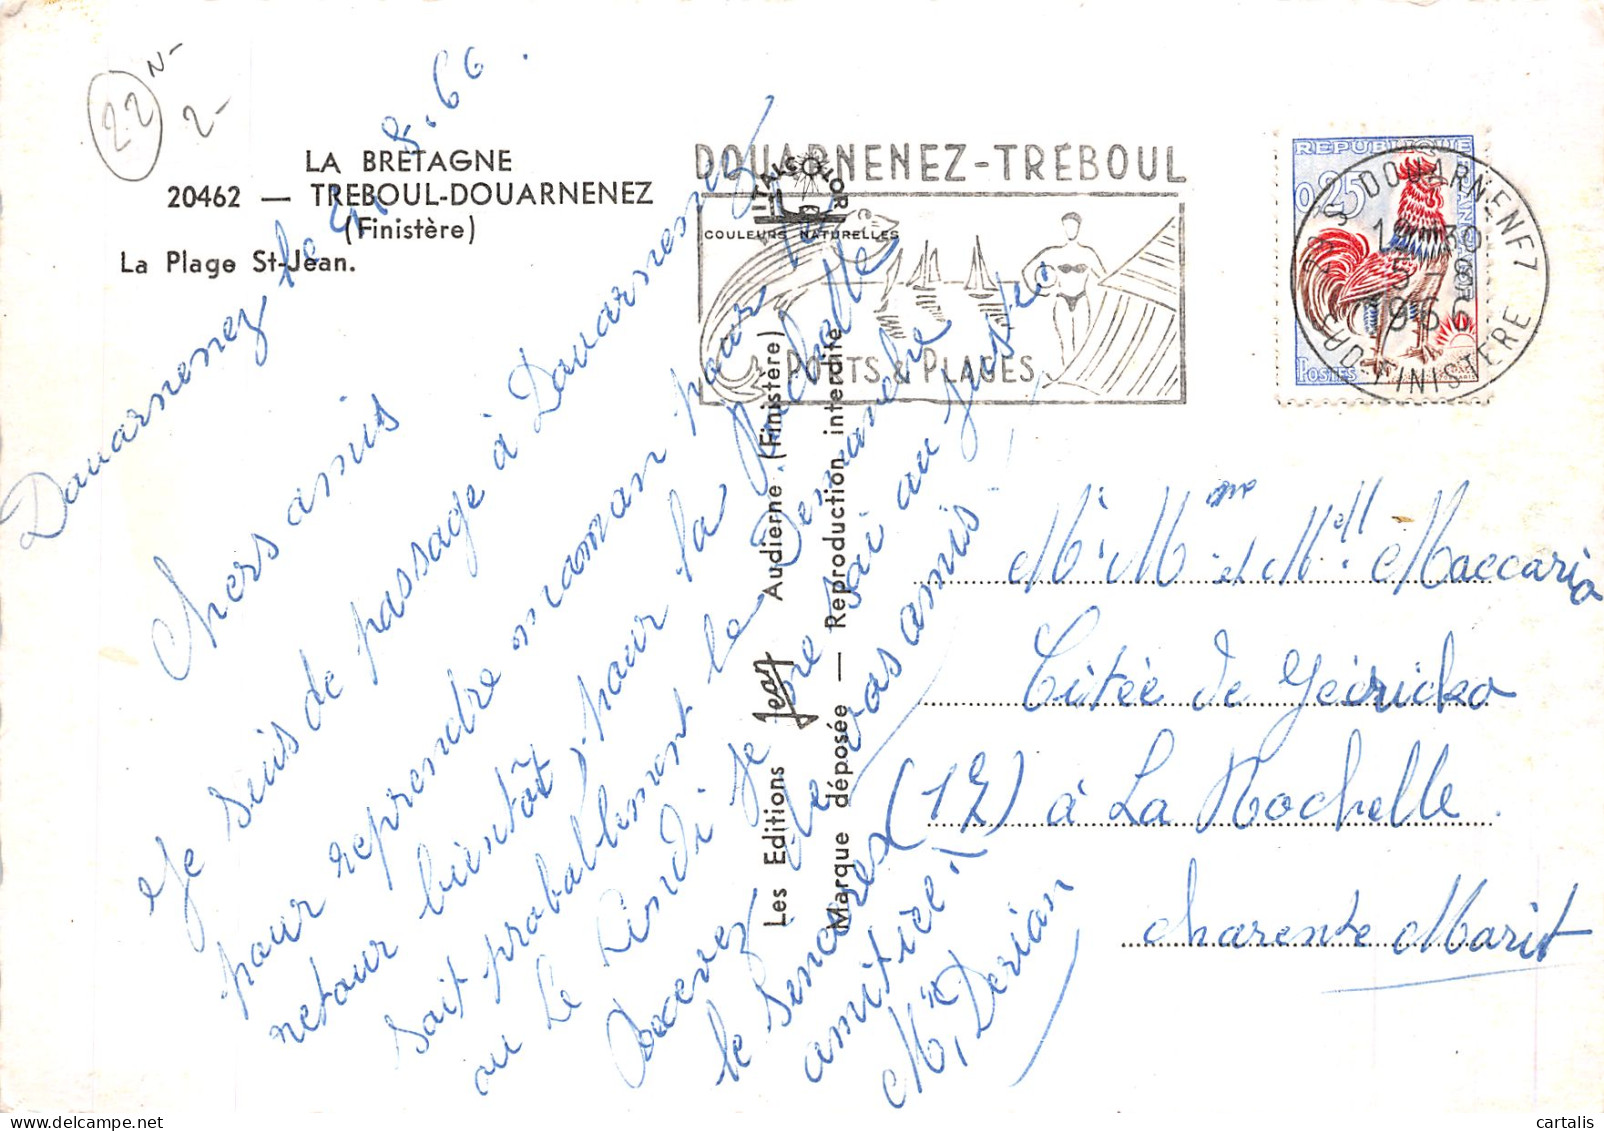 22
N-
2-
LA BRETAGNE
20462 — TREBOUL-DOUARNENEZ
(Finistère)
La Plage St-Jean.
DOUARNENEZ-TRÉBOUL
PORTS & PLAGES
ITALCOLOR
COULEURS NATURELLES
REPUBLIQUE FRANÇAISE
0,25
POSTES
DOUARNENEZ
1966
FINISTERE
Les Editions Jean Audierne (Finistère)
Marque déposée — Reproduction interdite
Douarnenez le 5.66.
Chers amis
Je suis de passage à Douarnenez
pour reprendre maman pour
retour bientôt, pour la Rochelle
soit probablement le Dimanche
ou le Lundi je ne sai au juste
Recevez de vos amis
le sincères
amitiée
Mr Derian
Mr Mme et Mell. Maccario
Citée de Géiricko
(17) à La Rochelle
Charente Marit
cartalis
www.delcampe.net